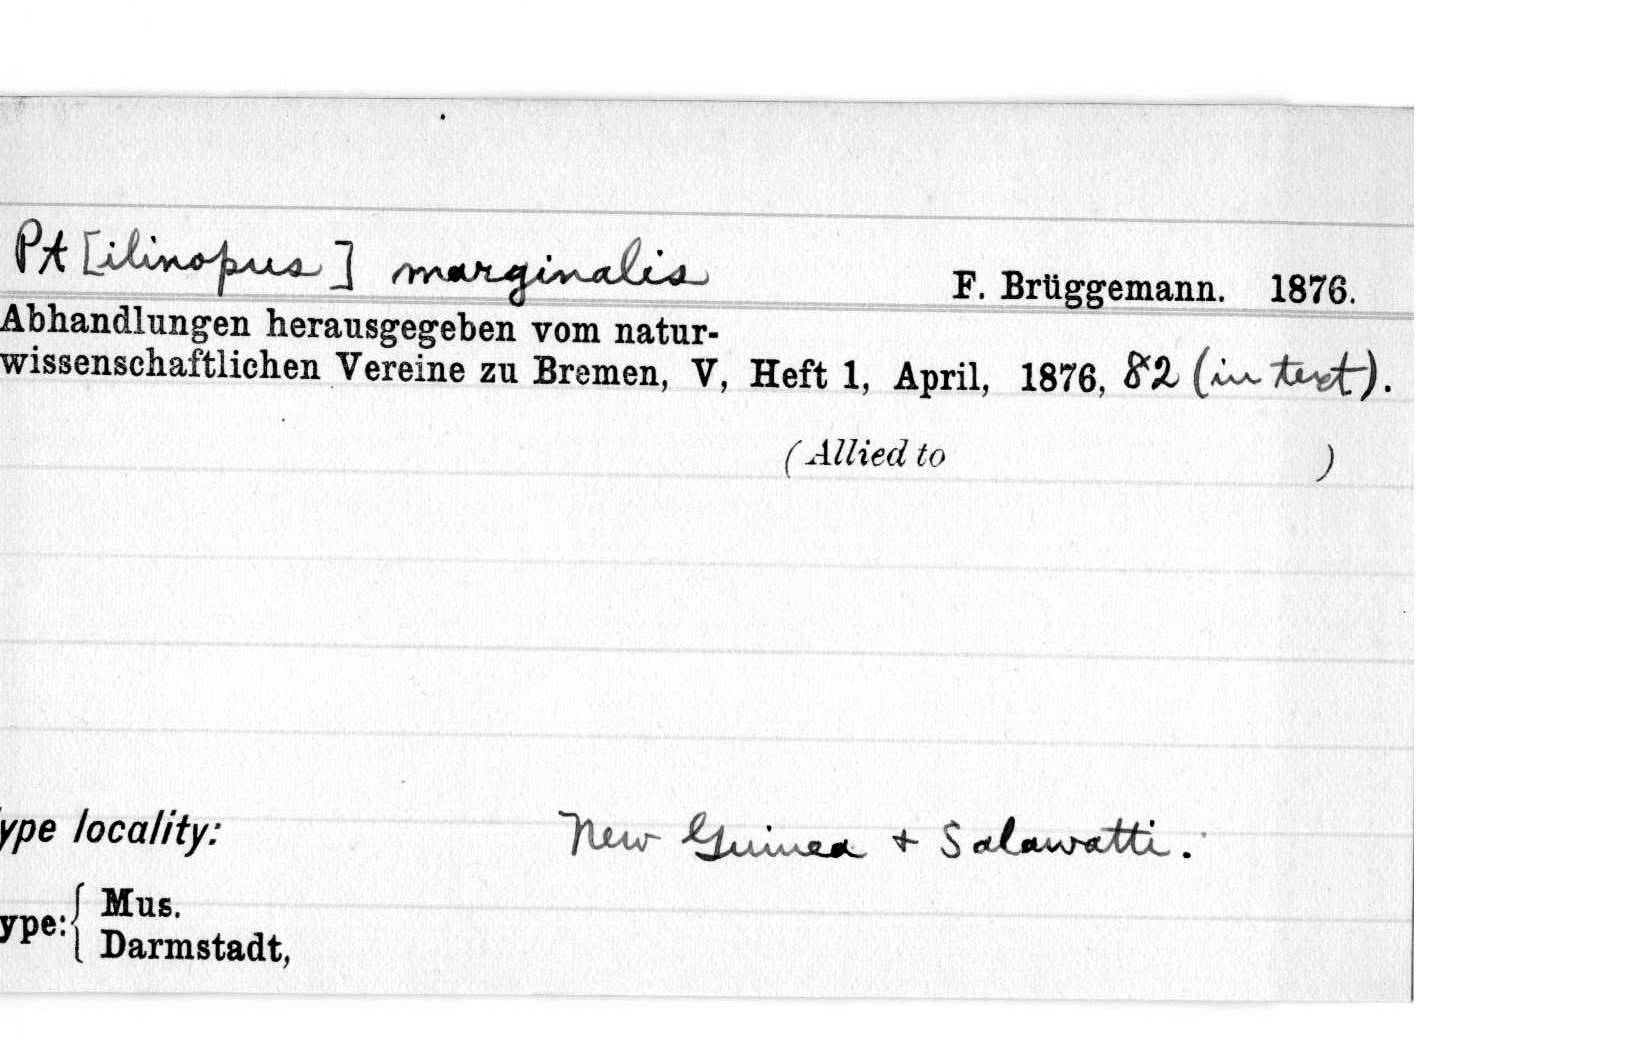 Pt [ilinopus] marginalis F. Brüggemann. 1876.
Abhandlungen herausgegeben vom natur-
wissenschaftlichen Vereine zu Bremen, V, Heft 1, April, 1876, 82 (in text).
(Allied to )
ype locality: New Guinea + Salawatti.
ype: { Mus.
Darmstadt,